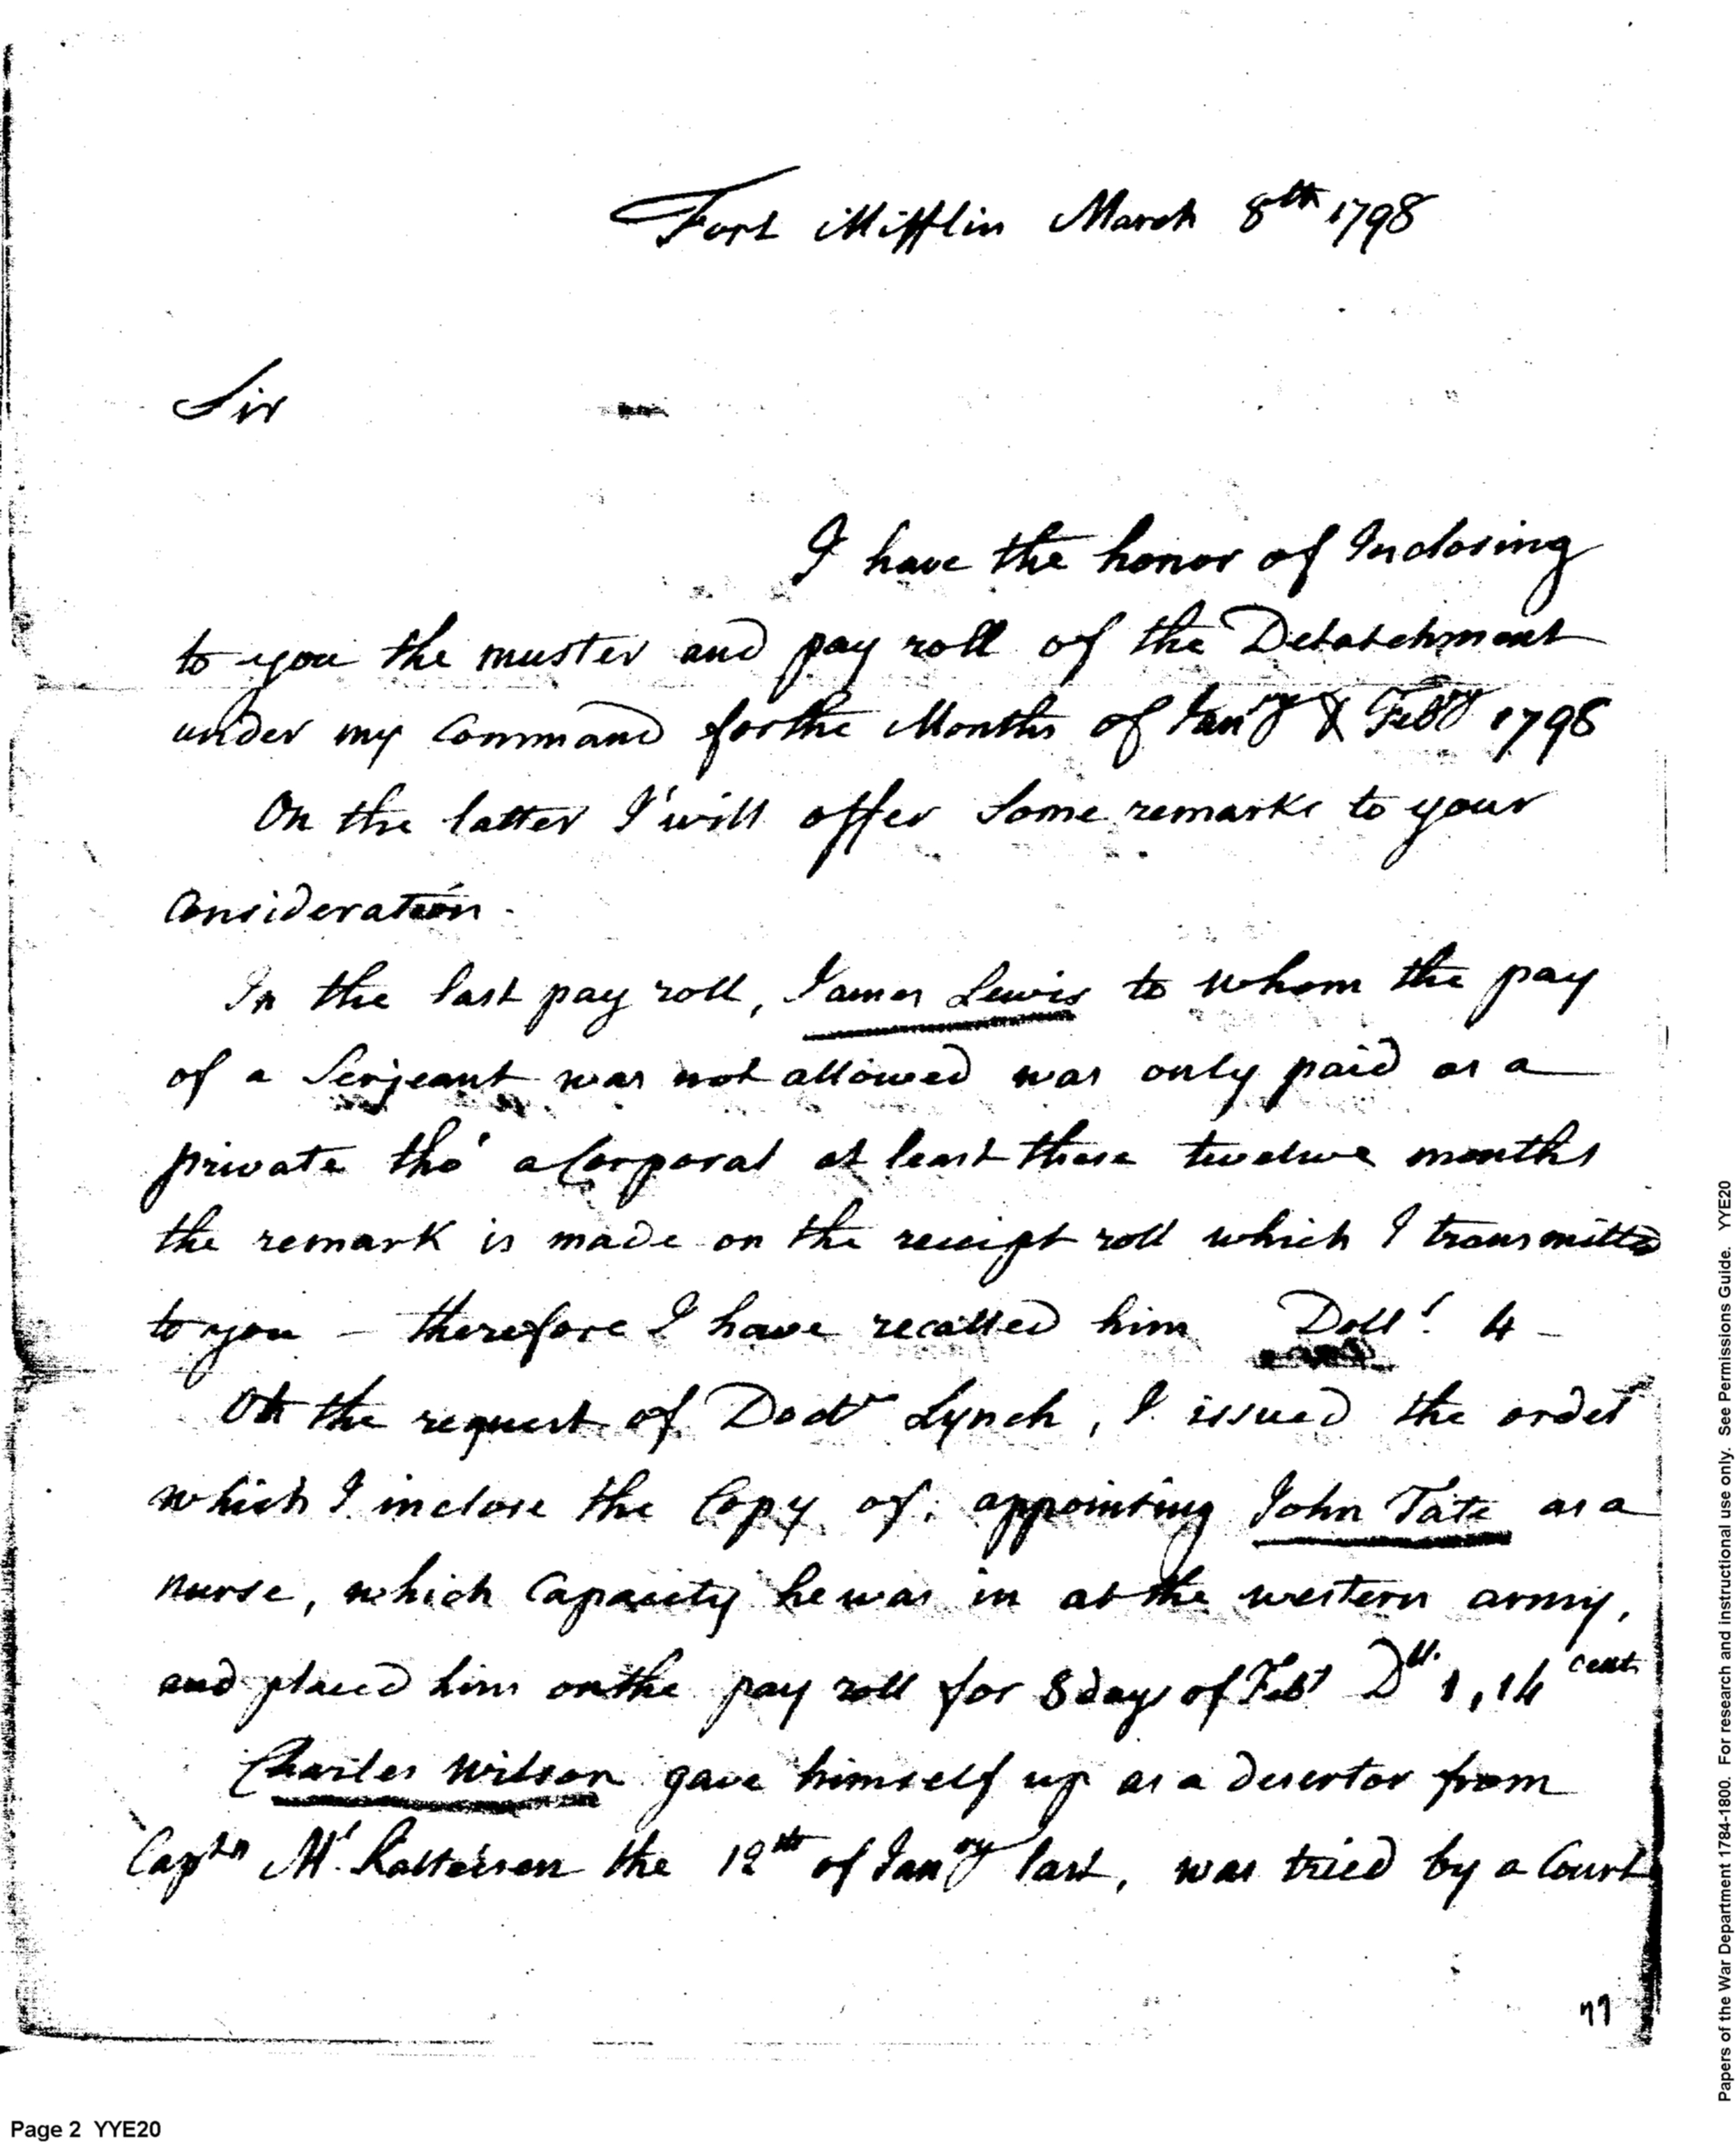 Fort Mifflin March 8th 1798
Sir
I have the honor of Inclosing
to you the muster and pay roll of the Detatchment
under my Command for the Months of Jany & Feby 1798
On the latter I will offer Some remarks to your
Consideration.
In the last pay roll, James Lewis to whom the pay
of a Serjeant was not allowed was only paid as a
private tho' a Corporal at least these twelve months
the remark is made on the receipt roll which I transmitted
to you – therefore I have recalled him Doll. 4 –
On the request of Doctr Lynch, I issued the order
which I inclose the Copy of, appointing John Tate as a
nurse, which Capacity he was in at the western army,
and placed him on the pay roll for 8 days of Feby Dll. 1,14 cents
Charles Wilson gave himself up as a desertor from
Captn the 12th of Jany last, was tried by a Court
77
Page 2 YYE20
Papers of the War Department 1784-1800. For research and instructional use only. See Permissions Guide. YYE20